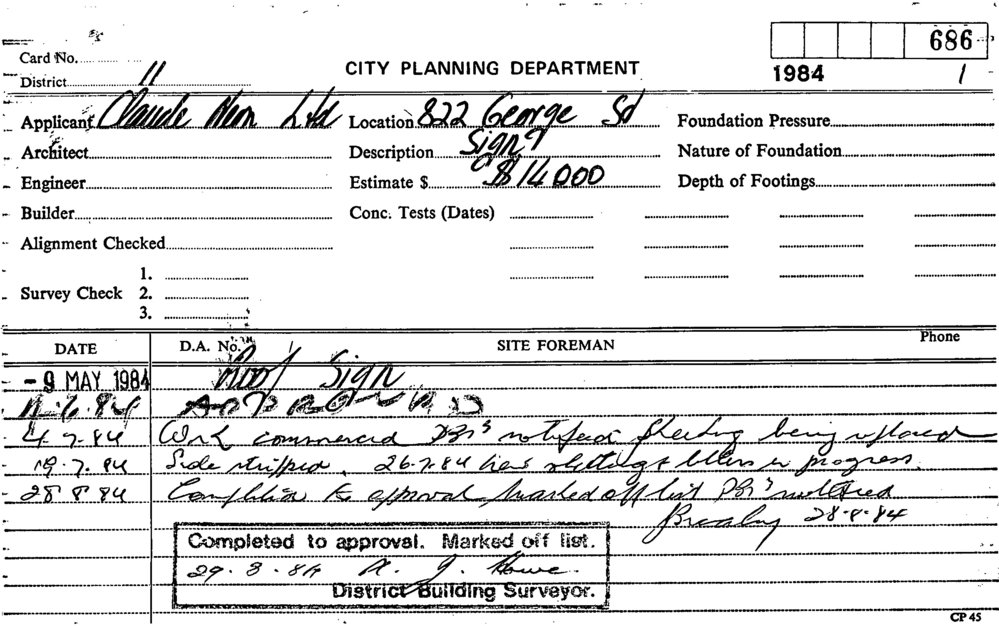 686
Card No.
CITY PLANNING DEPARTMENT
1984 1
District 11
Applicant Claude Neon Ltd Location 822 George St Foundation Pressure
Architect Description Sign Nature of Foundation
Engineer Estimate $ $14000 Depth of Footings
Builder Conc. Tests (Dates)
Alignment Checked
1.
Survey Check 2.
3.
DATE D.A. No. SITE FOREMAN Phone
- 9 MAY 1984 Roof Sign
6.84 APPROVED
4.7.84 Work commenced notified sheeting being replaced
19.7.84 Side stripped. 26.7.84 new sheeting & letters in progress.
28 8 84 Completed to approval marked off list notified
28.8.84
Completed to approval. Marked off list.
29.8.84 Howe.
District Building Surveyor.
CP 45